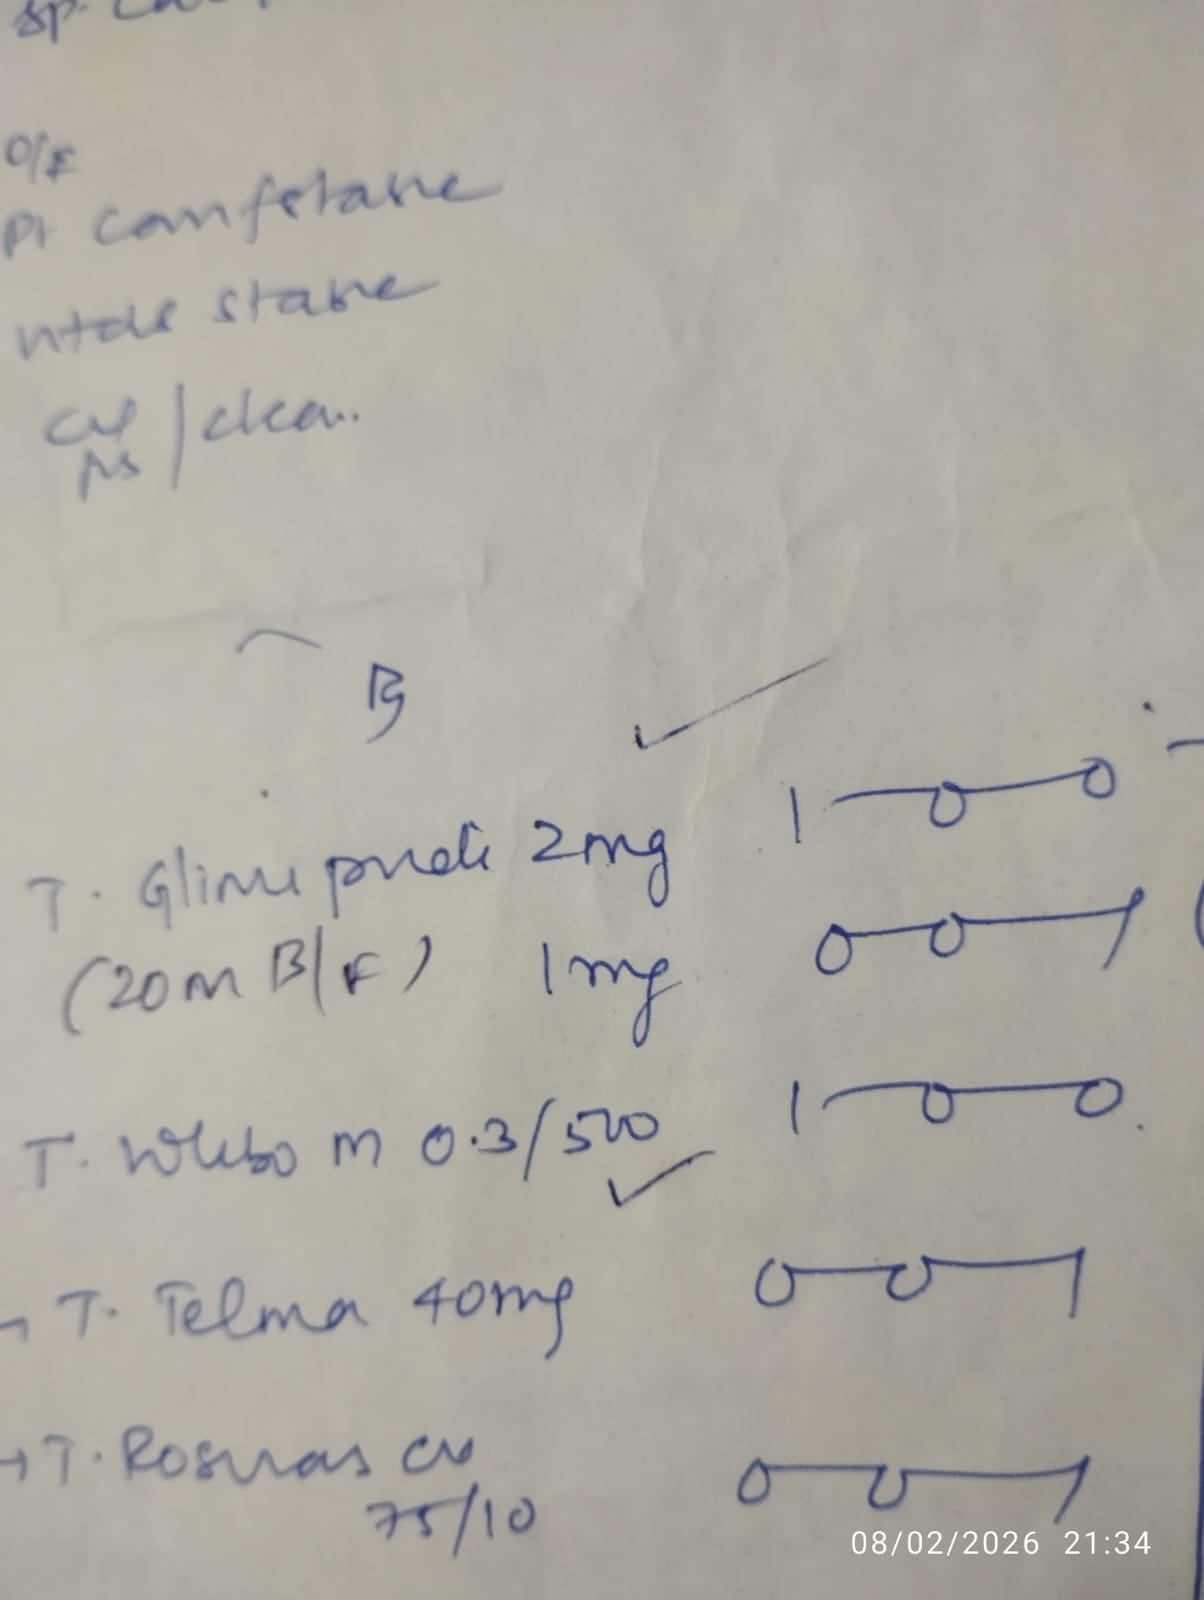 O/E
Pt comfortable
vitals stable
CVS
RS / clear
Rx
T. Glimepiride 2mg 1-0-0
(20m B/F) 1mg 0-0-1
T. M 0.3/500 1-0-0
T. Telma 40mg 0-0-1
T. Rosuvas CV 0-0-1
75/10
08/02/2026 21:34